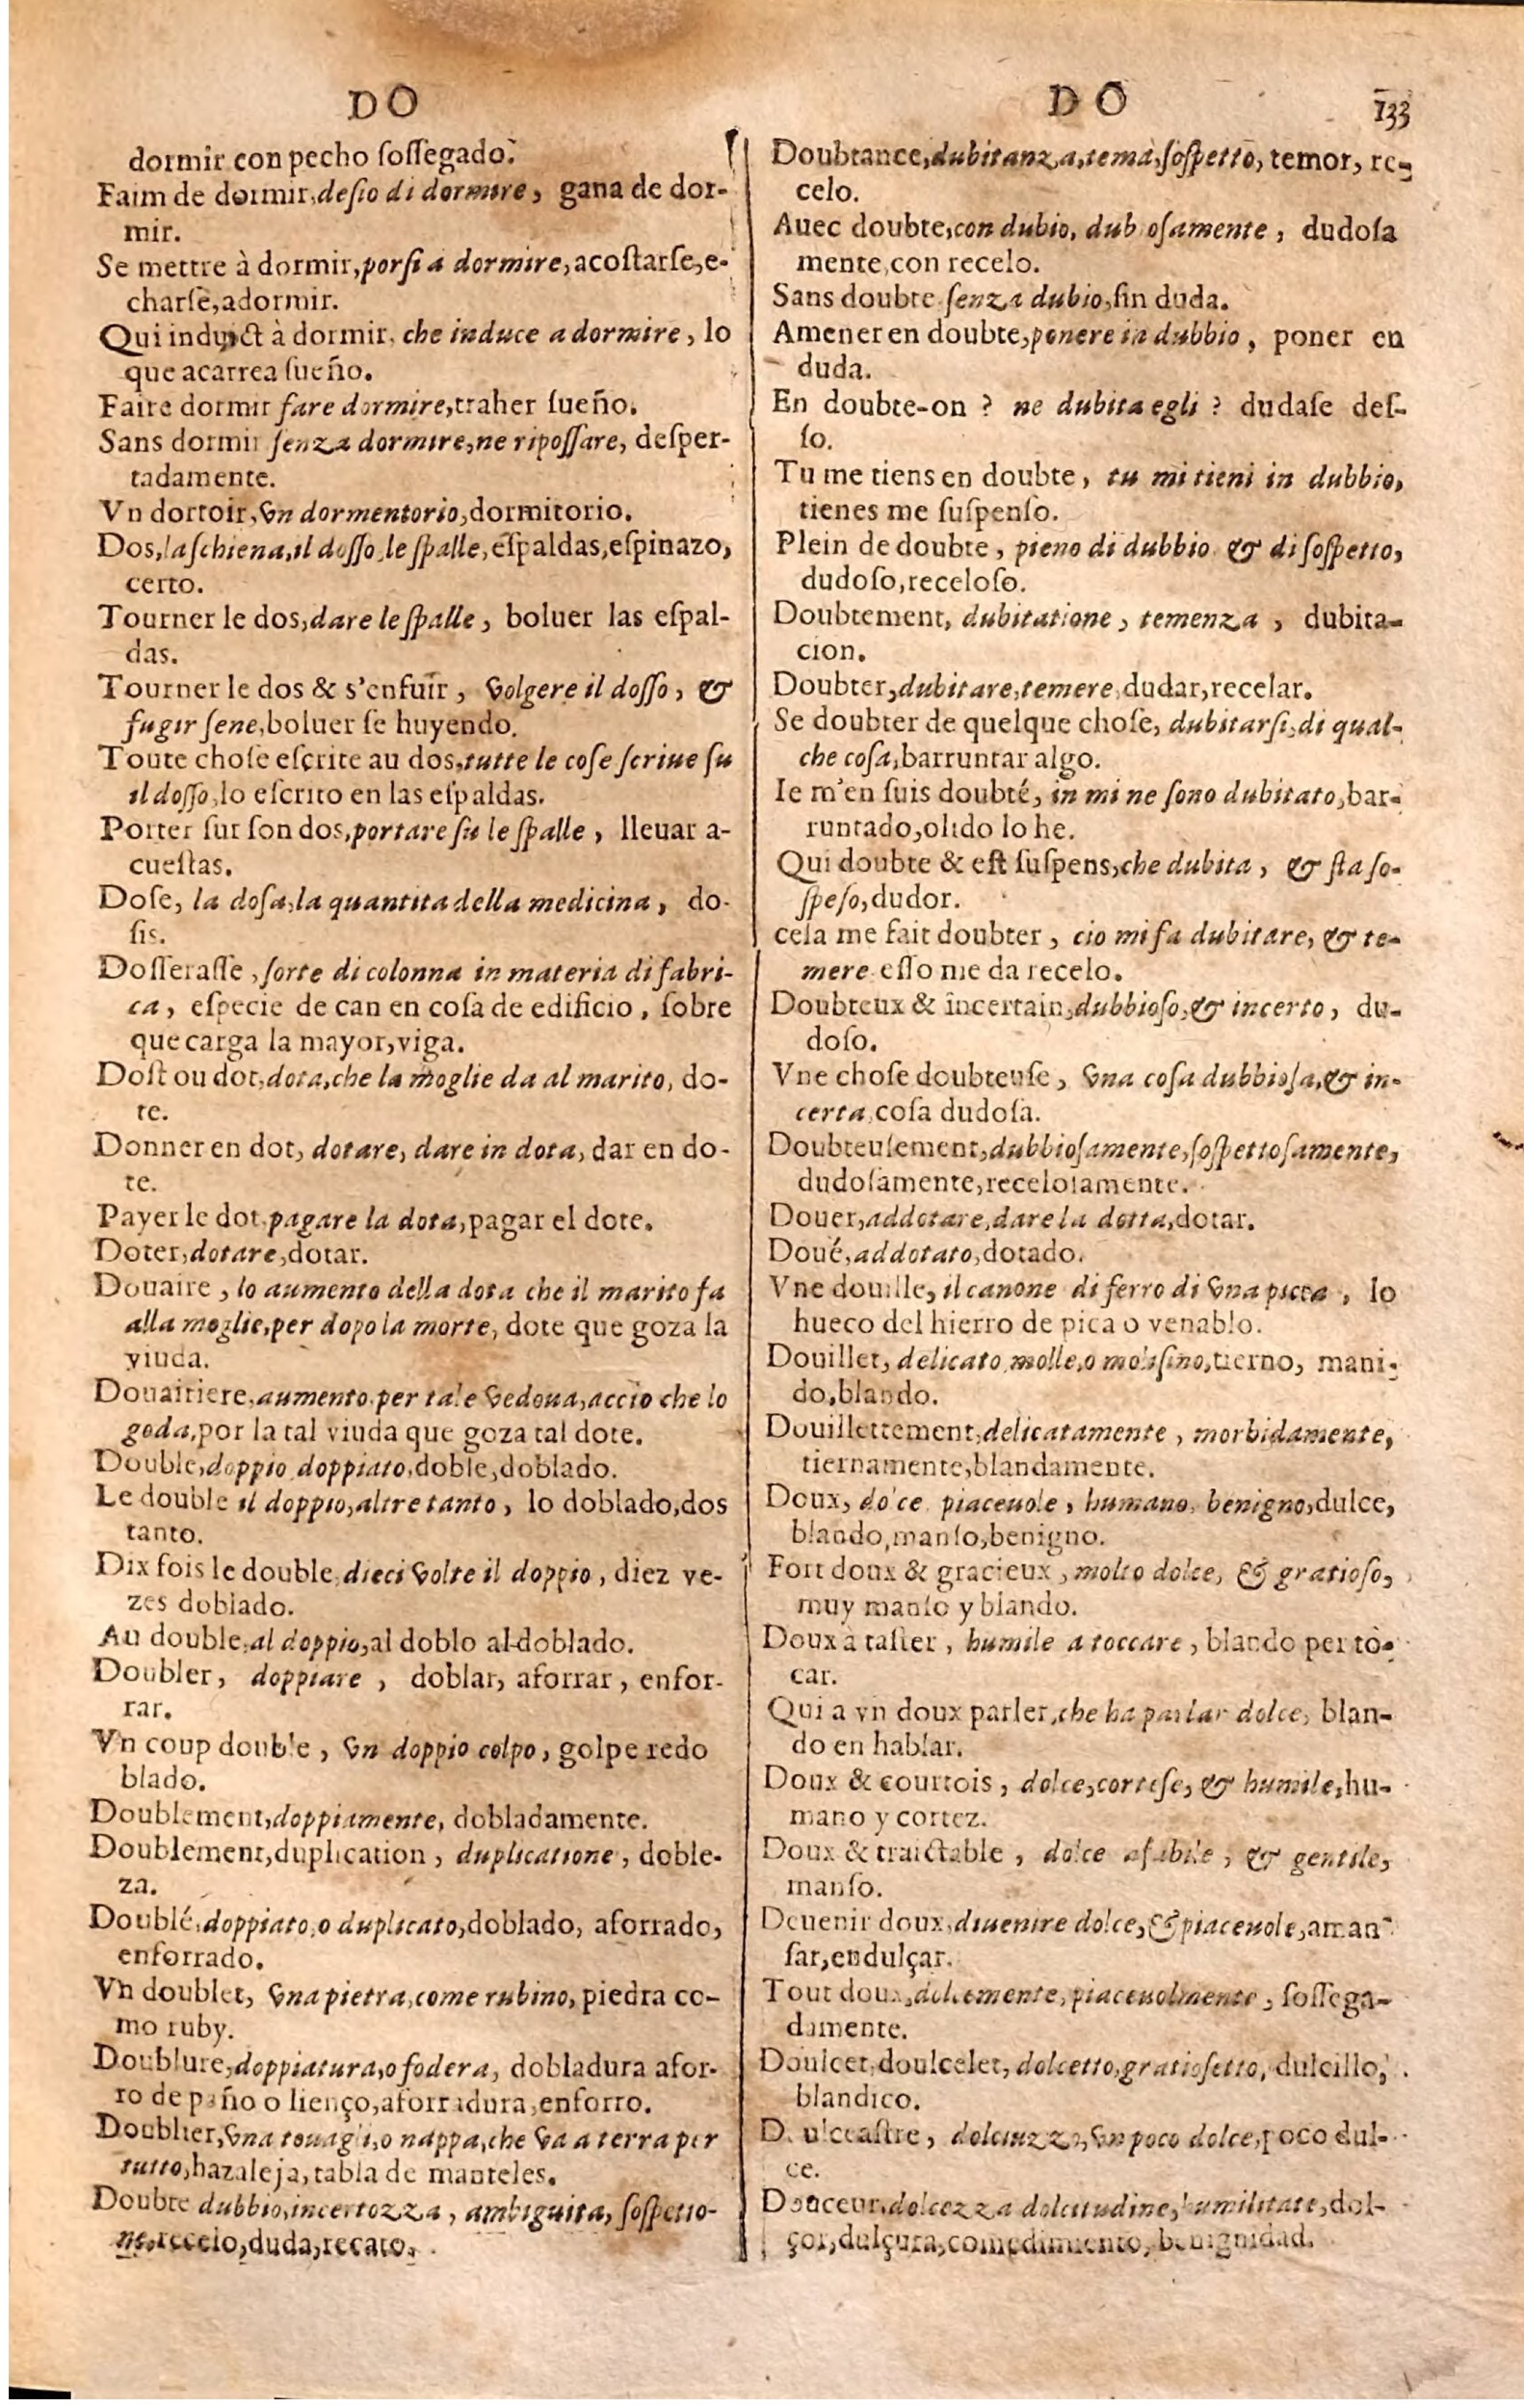 DO
dormir con pecho ſoſſegado.
Faim de dormir, deſio di dormire, gana de dor-
mir.
Se mettre à dormir, porſi a dormire, acoſtarſe, e-
charſe, adormir.
Qui induict à dormir, che induce a dormire, lo
que acarrea ſueño.
Faire dormir fare dormire, traher ſueño.
Sans dormir ſenza dormire, ne ripoſſare, deſper-
tadamente.
Vn dortoir, vn dormentorio, dormitorio.
Dos, la ſchiena, il doſſo, le ſpalle, eſpaldas, eſpinazo,
certo.
Tourner le dos, dare le ſpalle, boluer las eſpal-
das.
Tourner le dos & s'enfuïr, volgere il doſſo, &
fugir ſene, boluer ſe huyendo.
Toute choſe eſcrite au dos, tutte le coſe ſcriue ſu
il doſſo, lo eſcrito en las eſpaldas.
Porter ſur ſon dos, portare ſu le ſpalle, lleuar a-
cueſtas.
Doſe, la doſa, la quantita della medicina, do-
ſis.
Doſſeraſſe, ſorte di colonna in materia di fabri-
ca, eſpecie de can en coſa de edificio, ſobre
que carga la mayor, viga.
Doſt ou dot, dota, che la moglie da al marito, do-
te.
Donner en dot, dotare, dare in dota, dar en do-
te.
Payer le dot, pagare la dota, pagar el dote.
Doter, dotare, dotar.
Douaire, lo aumento della dota che il marito fa
alla moglie, per dopo la morte, dote que goza la
viuda.
Douairiere, aumento per tale vedoua, accio che lo
goda, por la tal viuda que goza tal dote.
Double, doppio doppiato, doble, doblado.
Le double il doppio, altre tanto, lo doblado, dos
tanto.
Dix fois le double, dieci volte il doppio, diez ve-
zes doblado.
Au double, al doppio, al doblo al doblado.
Doubler, doppiare, doblar, aforrar, enfor-
rar.
Vn coup double, vn doppio colpo, golpe redo
blado.
Doublement, doppiamente, dobladamente.
Doublement, duplication, duplicatione, doble-
za.
Doublé, doppiato, o duplicato, doblado, aforrado,
enforrado.
Vn doublet, vna pietra, come rubino, piedra co-
mo ruby.
Doublure, doppiatura, o fodera, dobladura afor-
ro de paño o lienço, aforradura, enforro.
Doublier, vna touagli, o nappa, che va a terra per
tutto, hazaleja, tabla de manteles.
Doubte dubbio, incertozza, ambiguita, ſoſpetto-
ne, recelo, duda, recato.
DO 133
Doubtance, dubitanza, tema, ſoſpetto, temor, re-
celo.
Auec doubte, con dubio, dub oſamente, dudoſa
mente, con recelo.
Sans doubte ſenza dubio, ſin duda.
Amener en doubte, ponere in dubbio, poner en
duda.
En doubte-on ? ne dubita egli ? dudaſe deſ-
ſo.
Tu me tiens en doubte, tu mi tieni in dubbio,
tienes me ſuſpenſo.
Plein de doubte, pieno di dubbio & di ſoſpetto,
dudoſo, receloſo.
Doubtement, dubitatione, temenza, dubita-
cion.
Doubter, dubitare, temere, dudar, recelar.
Se doubter de quelque choſe, dubitarſi, di qual-
che coſa, barruntar algo.
Ie m'en ſuis doubté, in mi ne ſono dubitato, bar-
runtado, olido lo he.
Qui doubte & eſt ſuſpens, che dubita, & ſta ſo-
ſpeſo, dudor.
cela me fait doubter, cio mi fa dubitare, & te-
mere eſſo me da recelo.
Doubteux & incertain, dubbioſo, & incerto, du-
doſo.
Vne choſe doubteuſe, vna coſa dubbioſa, & in-
certa, coſa dudoſa.
Doubteuſement, dubbioſamente, ſoſpettoſamente,
dudoſamente, receloſamente.
Douer, addotare, dare la dotta, dotar.
Doué, addotato, dotado.
Vne douille, il canone di ferro di vna picca, lo
hueco del hierro de pica o venablo.
Douillet, delicato molle, o molſino, tierno, mani-
do, blando.
Douillettement, delicatamente, morbidamente,
tiernamente, blandamente.
Doux, dolce piaceuole, humano, benigno, dulce,
blando, manſo, benigno.
Fort doux & gracieux, molto dolce, & gratioſo,
muy manſo y blando.
Doux à taſter, humile a toccare, blando per to-
car.
Qui a vn doux parler, che ha parlar dolce, blan-
do en hablar.
Doux & courtois, dolce, corteſe, & humile, hu-
mano y cortez.
Doux & traictable, dolce afabile, & gentile,
manſo.
Deuenir doux, diuenire dolce, & piaceuole, aman-
ſar, endulçar.
Tout doux, dolcemente, piaceuolmente, ſoſſega-
damente.
Doulcet, doulcelet, dolcetto, gratioſetto, dulcillo,
blandico.
D. ulceaſtre, vn poco dolce, poco dul-
ce.
Douceur, dolcezza dolcitudine, humilitate, dol-
çor, dulçura, comedimiento, benignidad.